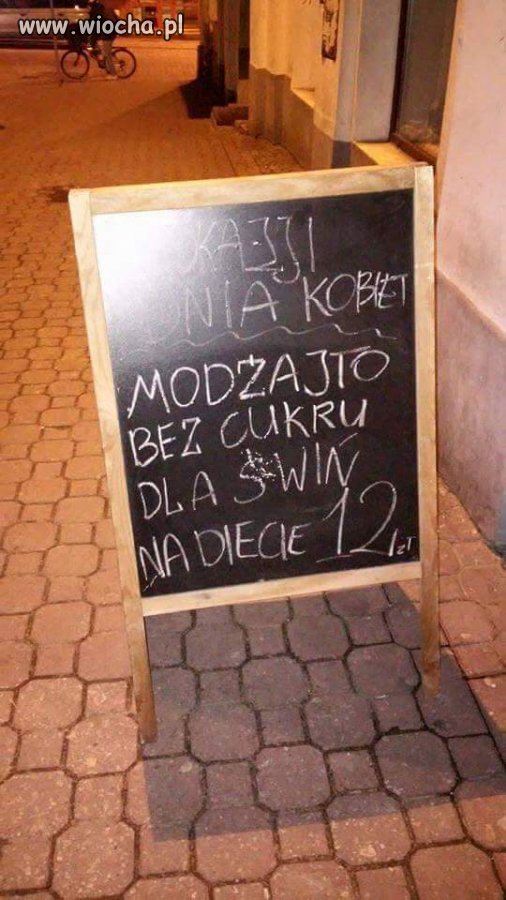 www.wiocha.pl
KAZJI
DNIA KOBIET
MODŻAJTO
BEZ CUKRU
DLA ŚWIŃ
NA DIECIE 12 zł